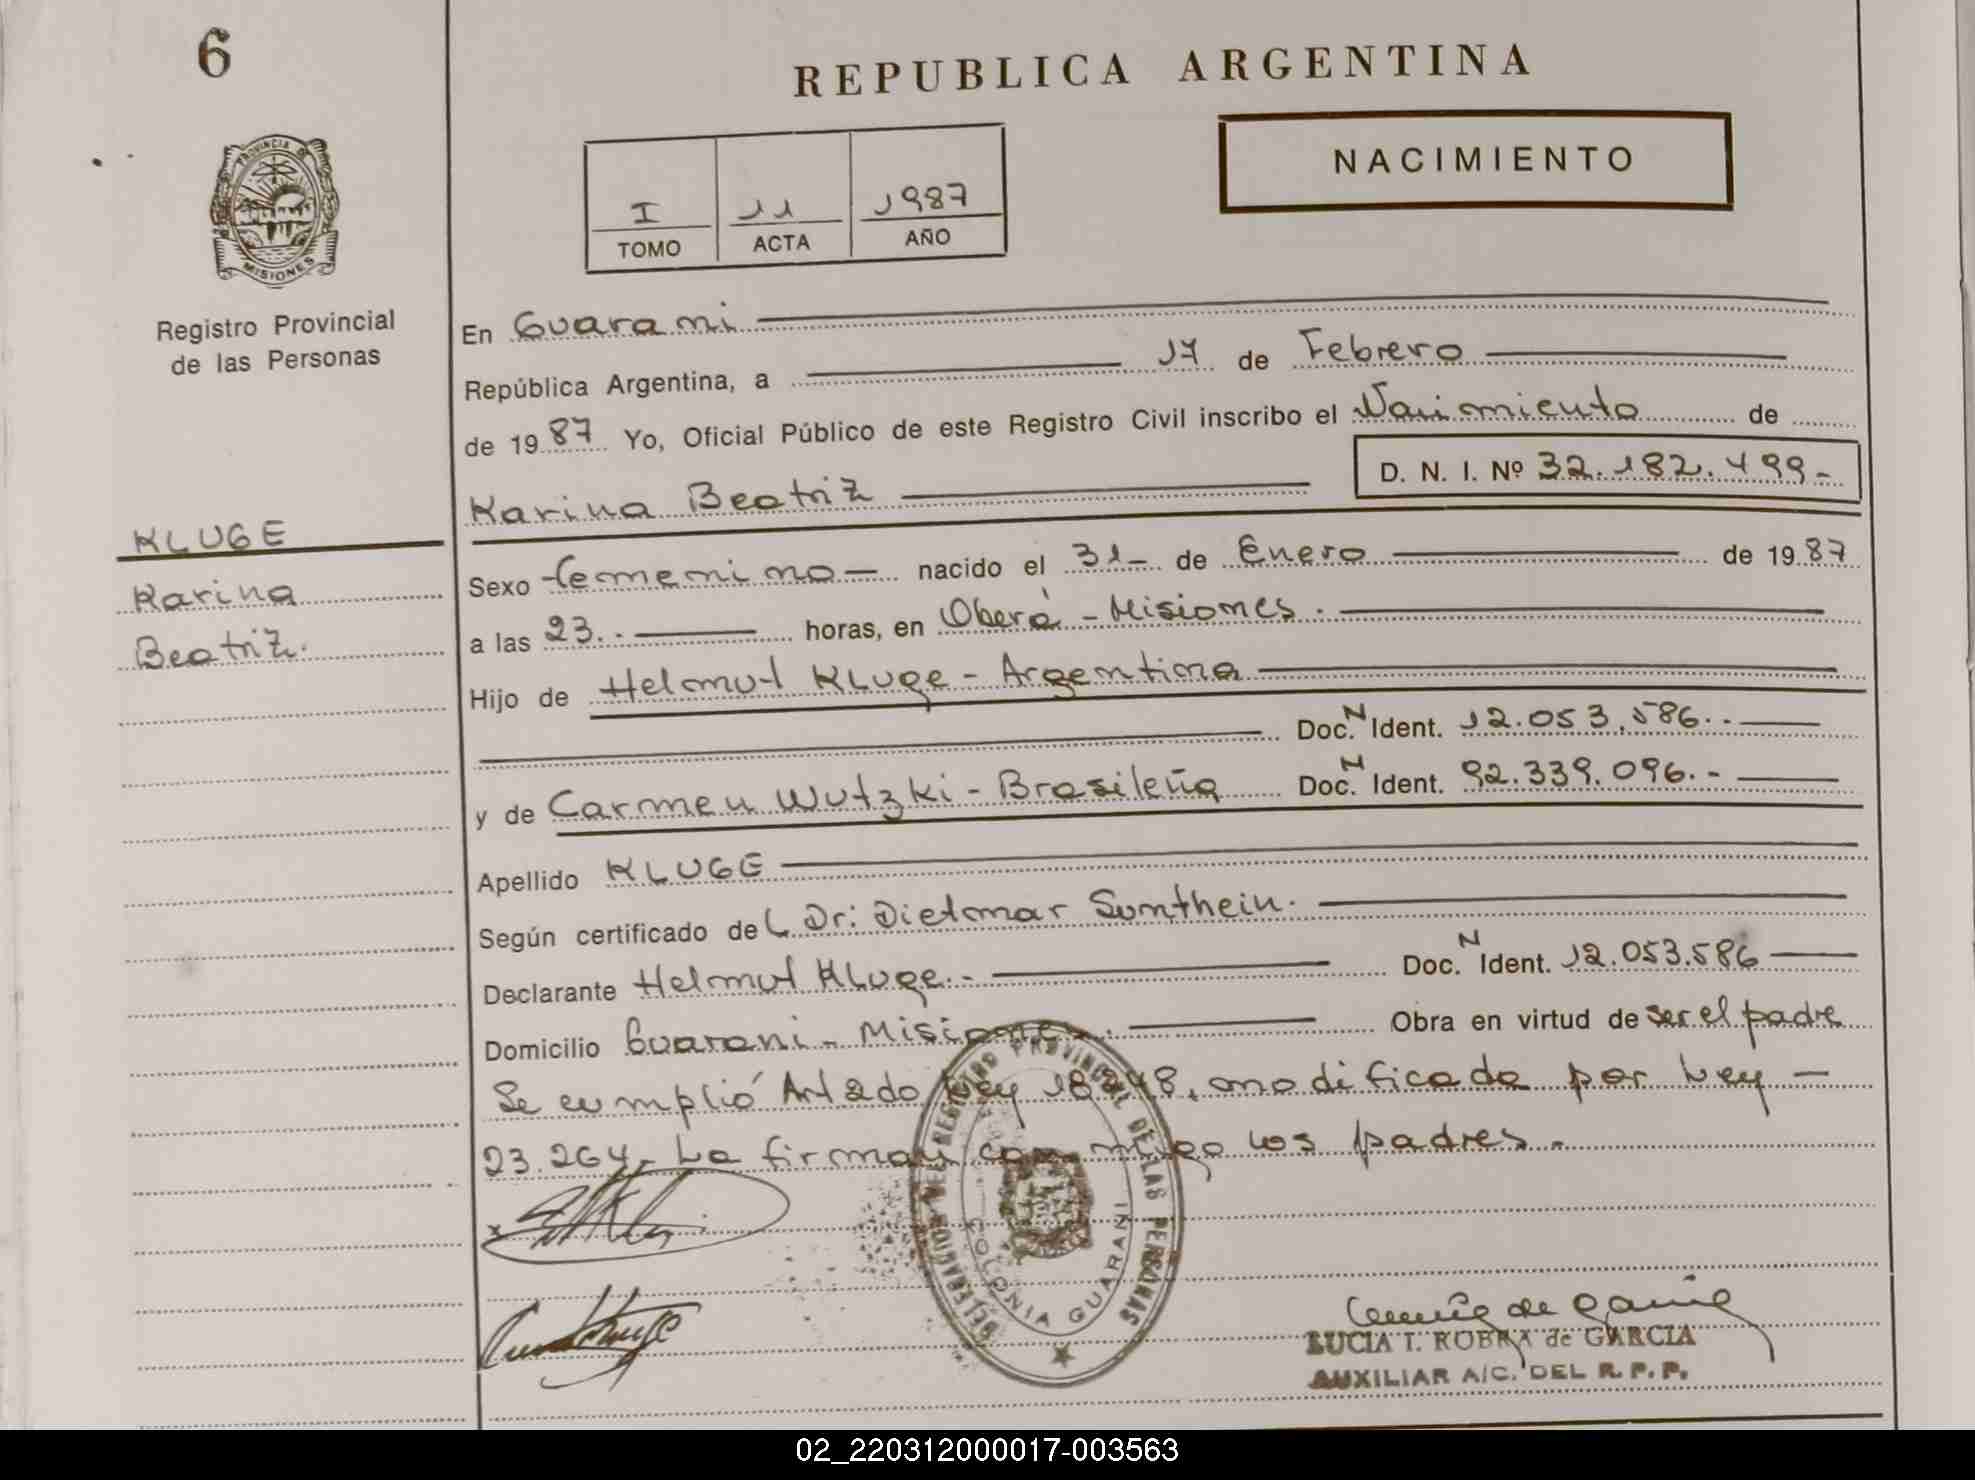 6
REPUBLICA ARGENTINA
NACIMIENTO
I 11 1987
TOMO ACTA AÑO
PROVINCIA DE
MISIONES
Registro Provincial
de las Personas
KLUGE
Karina
Beatriz.
En Guarani
República Argentina, a 17 de Febrero
de 1987 Yo, Oficial Público de este Registro Civil inscribo el Nacimiento de
Karina Beatriz D. N. I. Nº 32.182.499-
Sexo femenino nacido el 31 de Enero de 1987
a las 23.- horas, en Oberá - Misiones.
Hijo de Helmut Kluge - Argentina
Doc. N Ident. 12.053.586.-
y de Carmen Wutzki - Brasileña Doc. N Ident. 92.339.096.-
Apellido KLUGE
Según certificado del Dr: Dietmar
Declarante Helmut Kluge.- Doc. N Ident. 12.053.586
Domicilio Guarani - Misiones. Obra en virtud de ser el padre
Se cumplió Art 2do Ley 18.248, modificada por Ley -
23.264. La firman conmigo los padres.-
DELEGACION DEL REGISTRO PROVINCIAL DE LAS PERSONAS
COLONIA GUARANI
LUCIA T. ROBRA de GARCIA
AUXILIAR A/C. DEL R. P. P.
02_220312000017-003563